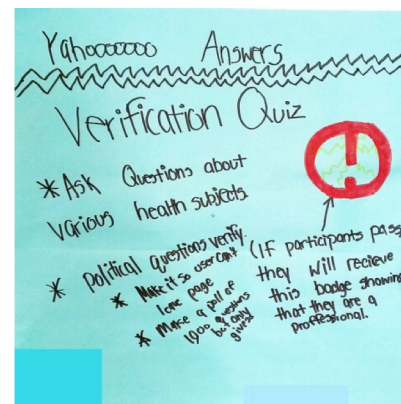 Yahooooooo Answers
Verification Quiz
* Ask Questions about
various health subjects.
* Political questions verify.
* Make it so user can't
page
* Make a poll of
1900 questions
but only
(If participants pass
they will recieve
this badge showing
that they are a
proffessional.